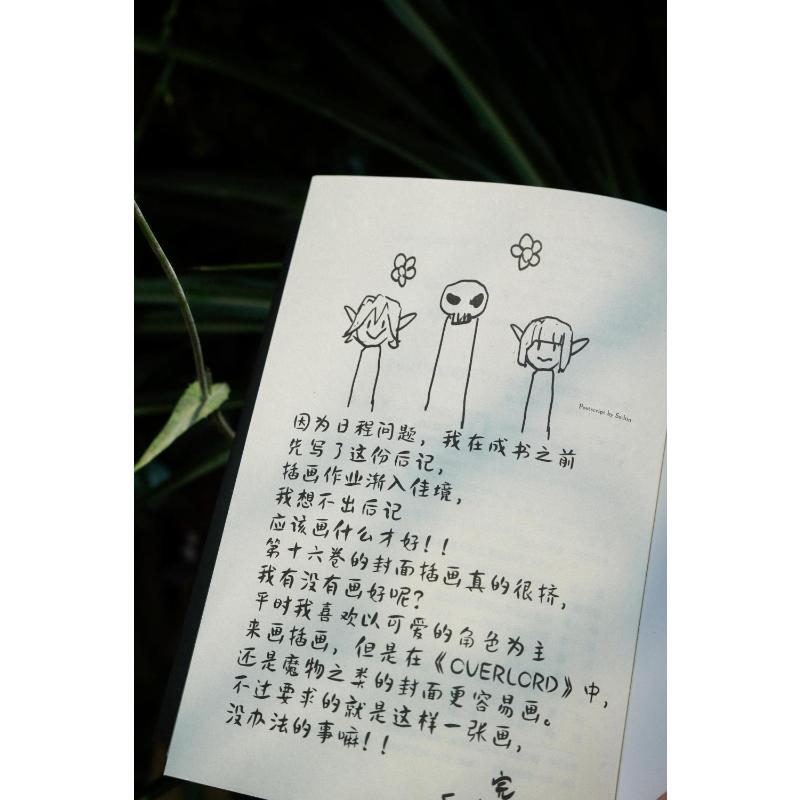 Postscript by So-bin
因为日程问题，我在成书之前
先写了这份后记，
插画作业渐入佳境，
我想不出后记
应该画什么才好！！
第十六卷的封面插画真的很挤，
我有没有画好呢？
平时我喜欢以可爱的角色为主
来画插画，但是在《OVERLORD》中，
还是魔物之类的封面更容易画。
不过要求的就是这样一张画，
没办法的事嘛！！
完